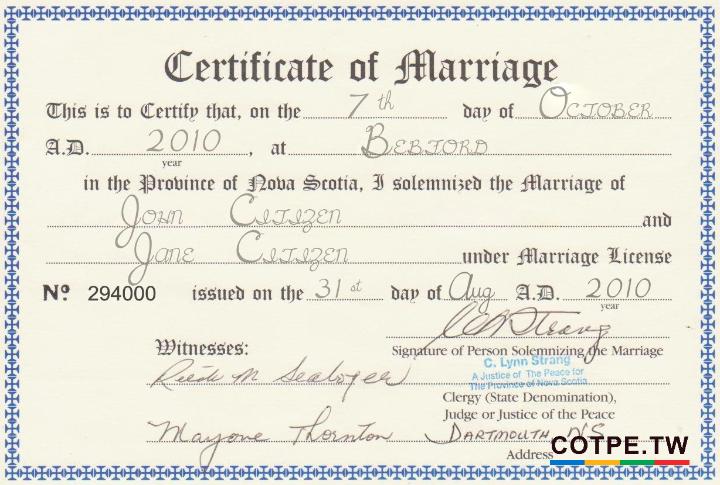 Certificate of Marriage
This is to Certify that, on the 7 th day of October
A.D. 2010, at Bebford
year
in the Province of Nova Scotia, I solemnized the Marriage of
John Citizen and
Jane Citizen under Marriage License
No 294000 issued on the 31 st day of Aug A.D. 2010
year
Strang
Witnesses:
Signature of Person Solemnizing the Marriage
C. Lynn Strang
A Justice of The Peace for
The Province of Nova Scotia
M
Clergy (State Denomination),
Judge or Justice of the Peace
Thornton
Dartmouth, NS
Address
COTPE.TW